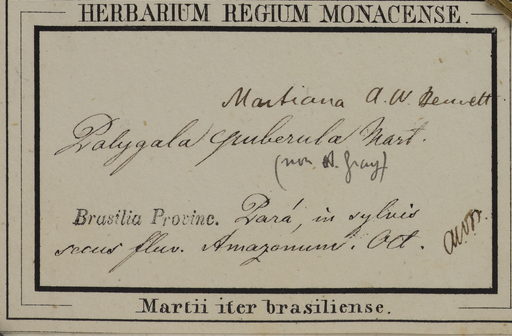 HERBARIUM REGIUM MONACENSE.
Martiana A. W. Bennett
Polygala puberula Mart.
(non A. Gray)
Brasilia Provinc. Pará, in sylvis
secus fluv. Amazonum. Oct.
A.W.B.
Martii iter brasiliense.